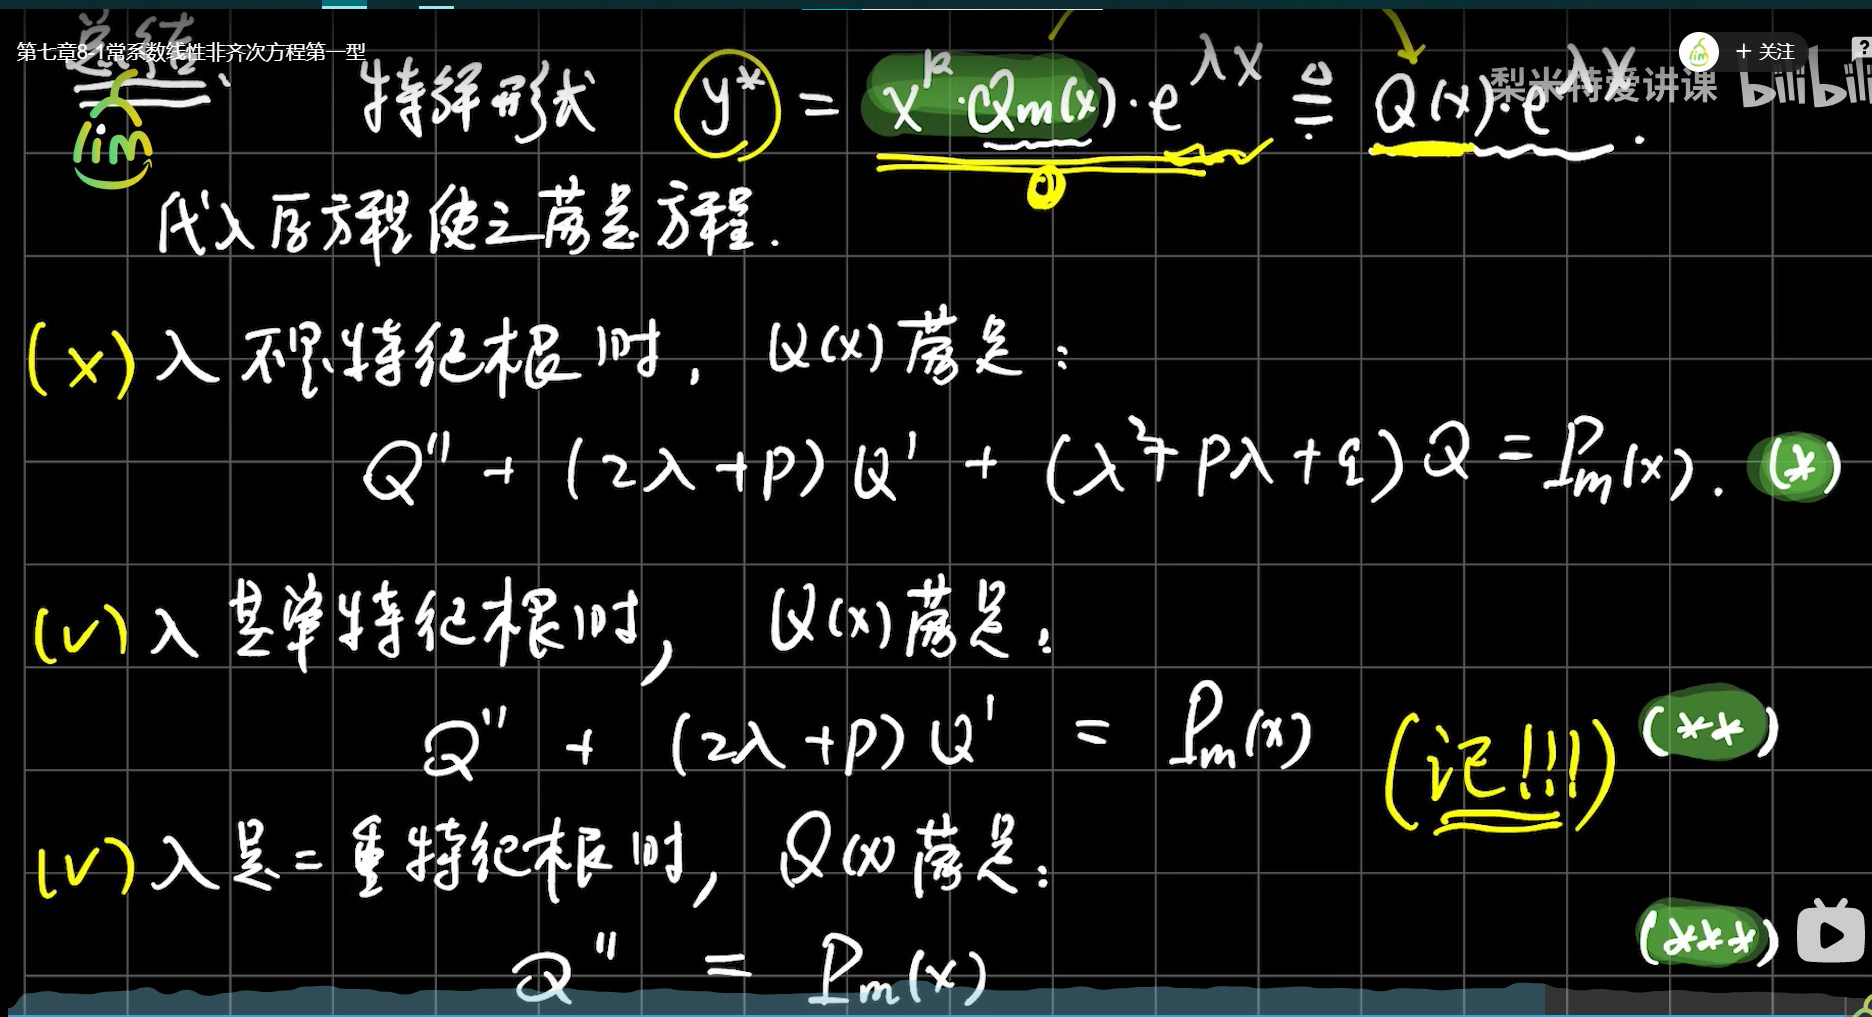 总结:
第七章8-1常系数线性非齐次方程第一型
+ 关注
梨米特爱讲课 bilibili
lim
特解形式 y* = x^k·Qm(x)·e^λx ≜ Q(x)·e^λx.
代入原方程使之满足方程.
(×) λ 不是特征根时, Q(x)满足:
Q'' + (2λ+p)Q' + (λ²+pλ+q)Q = Pm(x). (*)
(√) λ 是单特征根时, Q(x)满足:
Q'' + (2λ+p)Q' = Pm(x) (记!!!) (**)
(√) λ 是二重特征根时, Q(x)满足:
Q'' = Pm(x) (***)